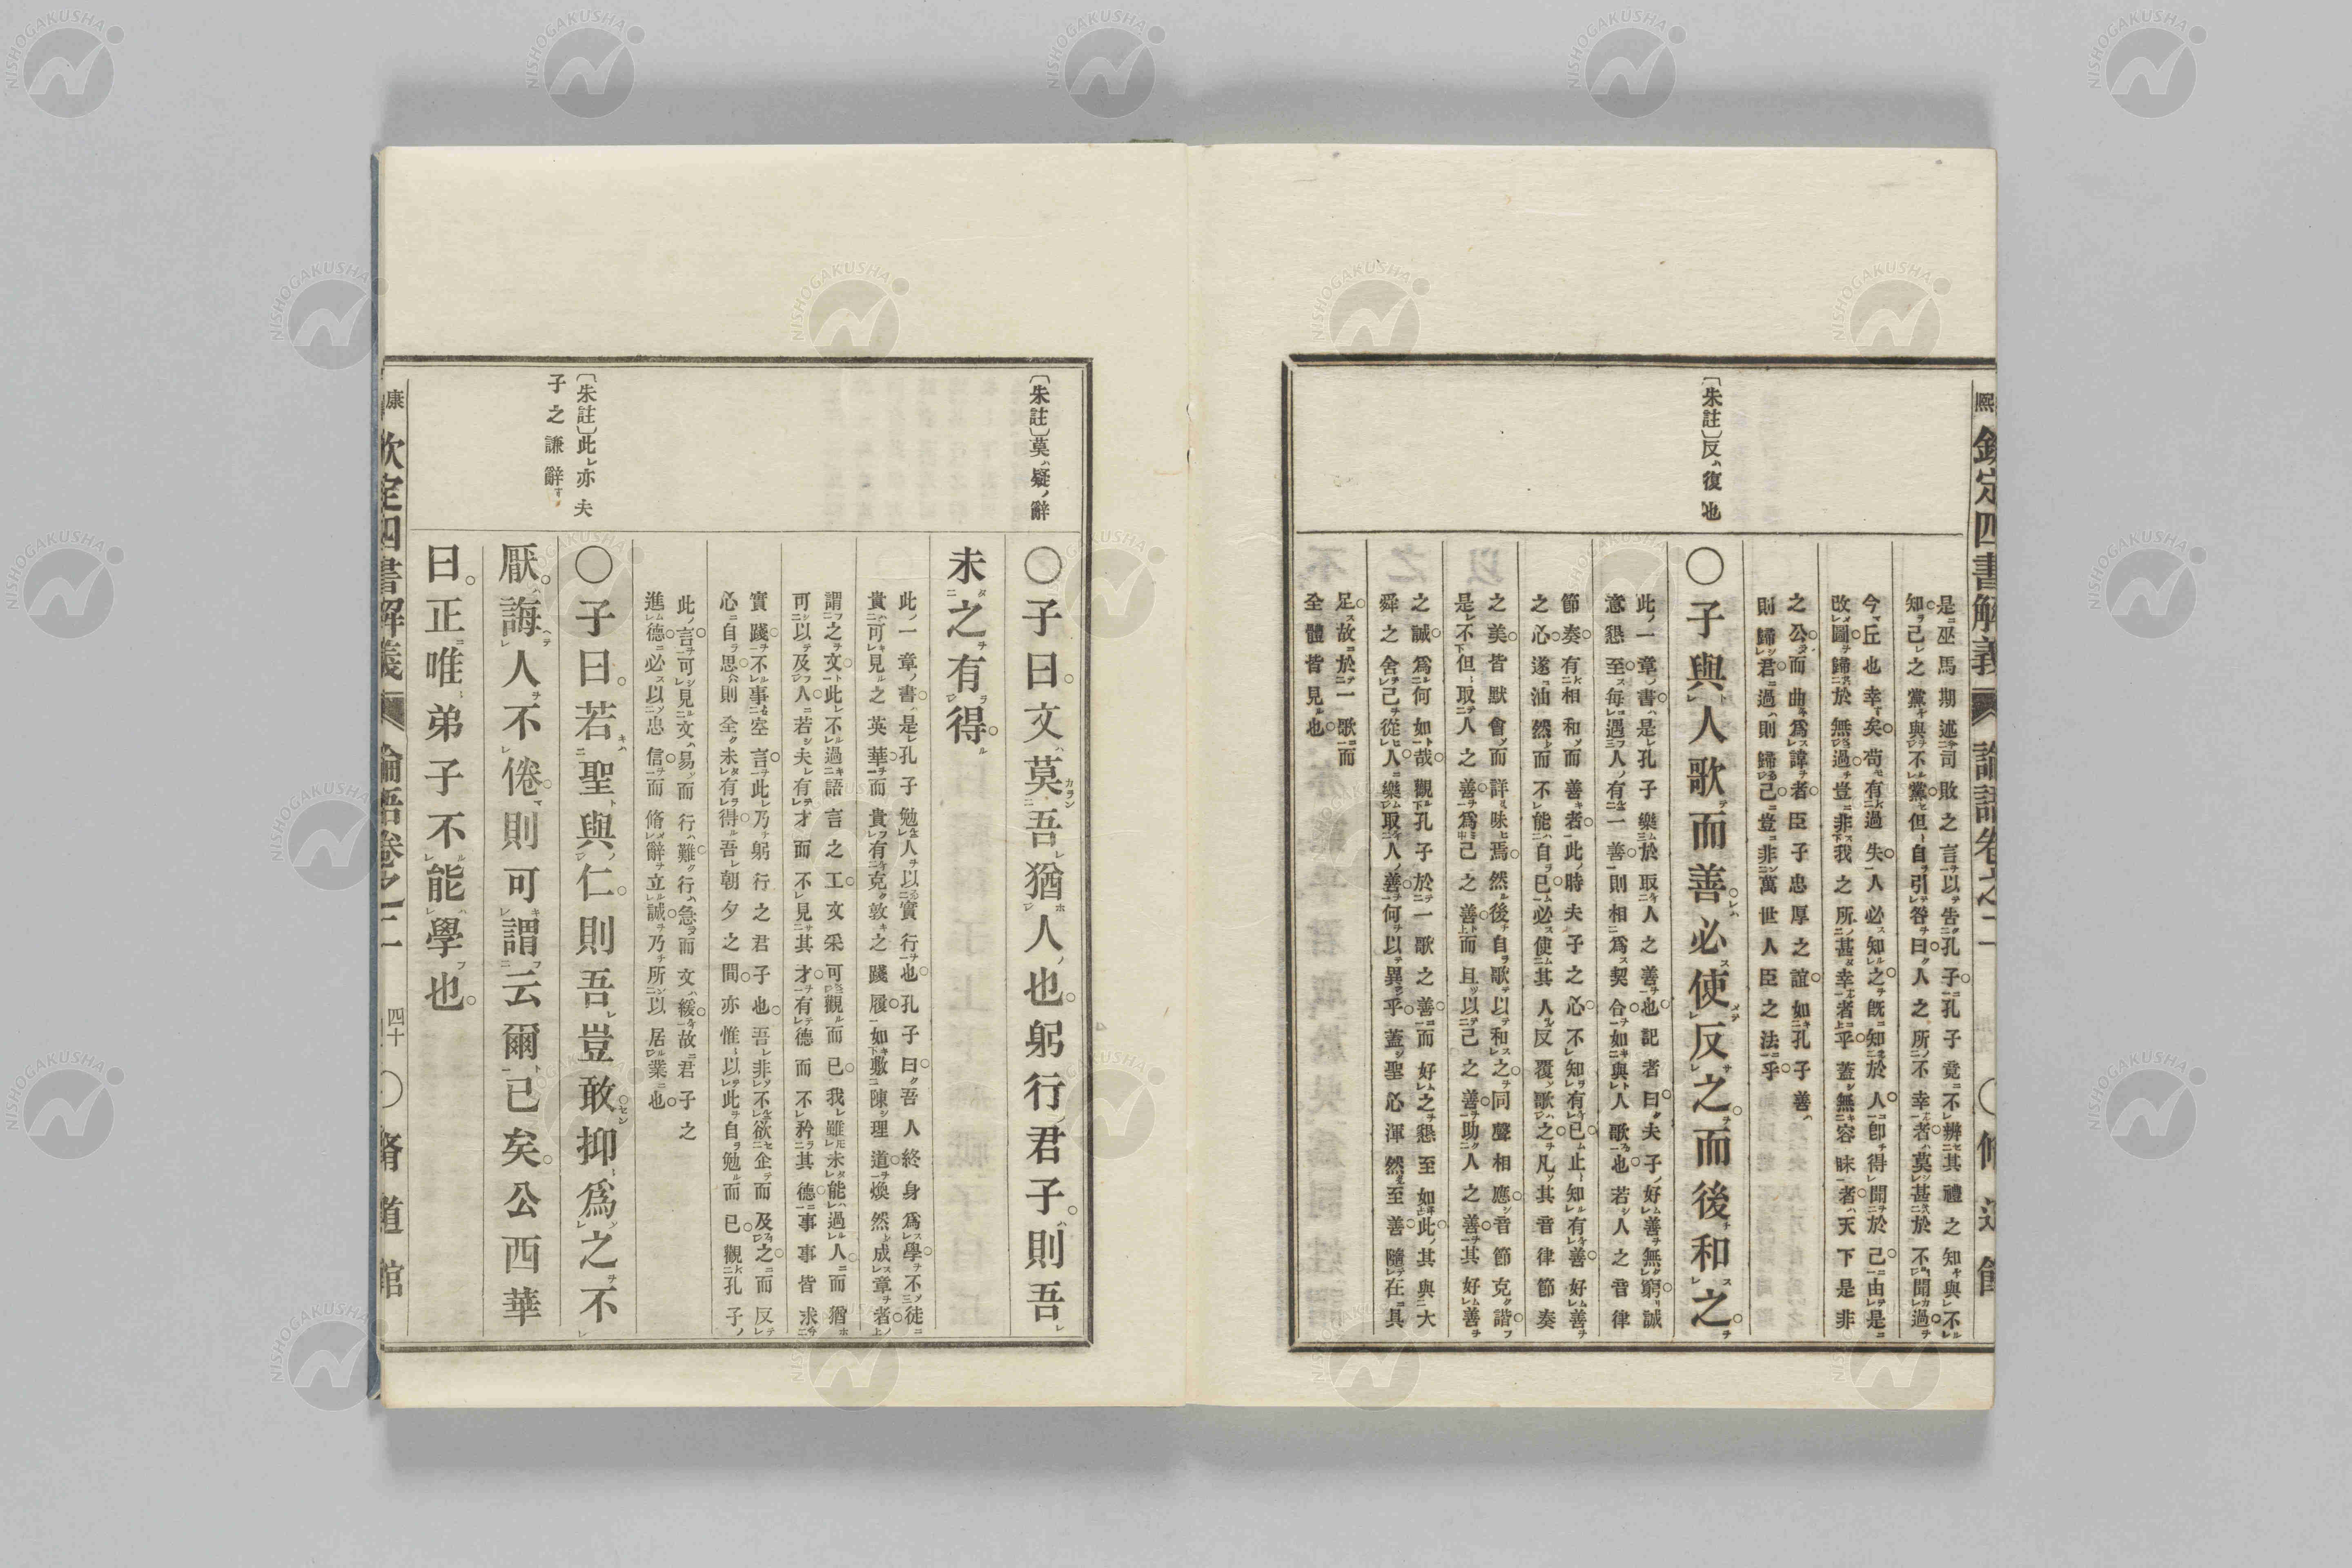 熙 欽定四書解義 論語卷之二 〇脩道館
是巫馬期述司敗之言以告孔子孔子竟不辨其禮之知與不
知己之黨與不黨但自引咎曰人之所不幸者莫甚於不聞過
今丘也幸矣苟有過失人必知之既知於人卽得聞於己由是
改圖歸於無過豈非我之所甚幸者乎蓋無容昧者天下是非
之公而曲爲諱者臣子忠厚之誼如孔子善
則歸君過則歸己豈非萬世人臣之法乎
〔朱註〕反復也
〇子與人歌而善必使反之而後和之
此一章書是孔子樂於取人之善也記者曰夫子好善無窮誠
意懇至每遇人有一善則相爲契合如與人歌也若人之音律
節奏有相和而善者此時夫子之心不知有已止知有善好善
之心遂油然而不能自已必使其人反覆歌之凡其音律節奏
之美皆默會而詳味焉然後自歌以和之同聲相應音節克諧
是不但取人之善爲己之善而且以己之善助人之善其好善
之誠爲何如哉觀孔子於一歌之善而好之懇至如此其與大
舜之舍己從人樂取人善何以異乎蓋聖心渾然至善隨在具
足故於一歌而
全體皆見也
〔朱註〕莫疑辭
〇子曰文莫吾猶人也躬行君子則吾
未之有得
此一章書是孔子勉人以實行也孔子曰吾人終身爲學不徒
貴可見之英華而貴有克敦之踐履如敷陳理道煥然成章者
謂之文此不過語言之工文采可觀而已我雖未能過人而猶
可以及人若夫有才而不見其才有德而不矜其德事事皆求
實踐不事空言此乃躬行之君子也吾非不欲企而及之而反
心自思則全未有得吾朝夕之間亦惟以此自勉而已觀孔子
此言可見文易而行難行急而文緩故君子之
進德必以忠信而脩辭立誠乃所以居業也
〔朱註〕此亦夫
子之謙辭
〇子曰若聖與仁則吾豈敢抑爲之不
厭誨人不倦則可謂云爾已矣公西華
曰正唯弟子不能學也
康 欽定四書解義 論語卷之二 四十 〇脩道館